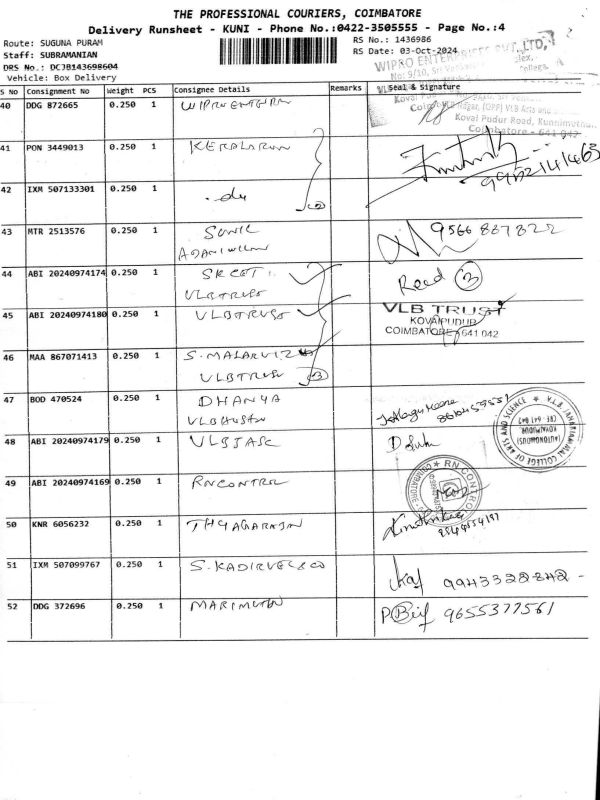 THE PROFESSIONAL COURIERS, COIMBATORE
Delivery Runsheet - KUNI - Phone No.:0422-3505555 - Page No.:4
Route: SUGUNA PURAM
RS No.: 1436986
Staff: SUBRAMANIAN
RS Date: 03-Oct-2024
DRS No.: DCJB143698604
Vehicle: Box Delivery
S No Consignment No Weight PCS Consignee Details Remarks Seal & Signature
WIPRO ENTERPRISES PVT. LTD,
Kovai Pudur Road, Kunnimuthur
Coimbatore - 641 042
40 DDG 872665 0.250 1
41 PON 3449013 0.250 1 KERALARUN
42 IXM 507133301 0.250 1 do
43 MTR 2513576 0.250 1 9566 867822
44 ABI 20240974174 0.250 1 SKCET Recd 3
VLBTRUST
45 ABI 20240974180 0.250 1 VLBTRUST
VLB TRUST
KOVAIPUDUR
COIMBATORE - 641 042
46 MAA 867071413 0.250 1 S. MALARVIZ
VLBTRUST 3
47 BOD 470524 0.250 1 DHANYA
48 ABI 20240974179 0.250 1 VLBJASC
V.L.B. JANAKIAMMAL COLLEGE OF ARTS AND SCIENCE
(AUTONOMOUS)
KOVAIPUDUR
CBE-641 042
49 ABI 20240974169 0.250 1 RNCONTROL
RN CONTROL
COIMBATORE
50 KNR 6056232 0.250 1 THYAGARAJAN
51 IXM 507099767 0.250 1 S. KADIRVEL & CO 9943328242
52 DDG 372696 0.250 1 MARIMUTHU 9655377561